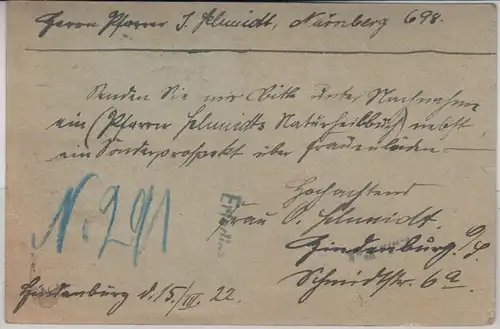 Herrn Pfarrer J. Schmidt, Nürnberg 698.
Senden Sie mir bitte unter Nachnahme
ein (Pfarrer Schmidts Naturheilbuch) nebst
ein Sonderprospekt über Frauenleiden
Hochachtend
Frau O. Schmidt.
Hindenburg O/S.
Schmidtstr. 6a.
Hindenburg d. 15/III. 22.
N. 291